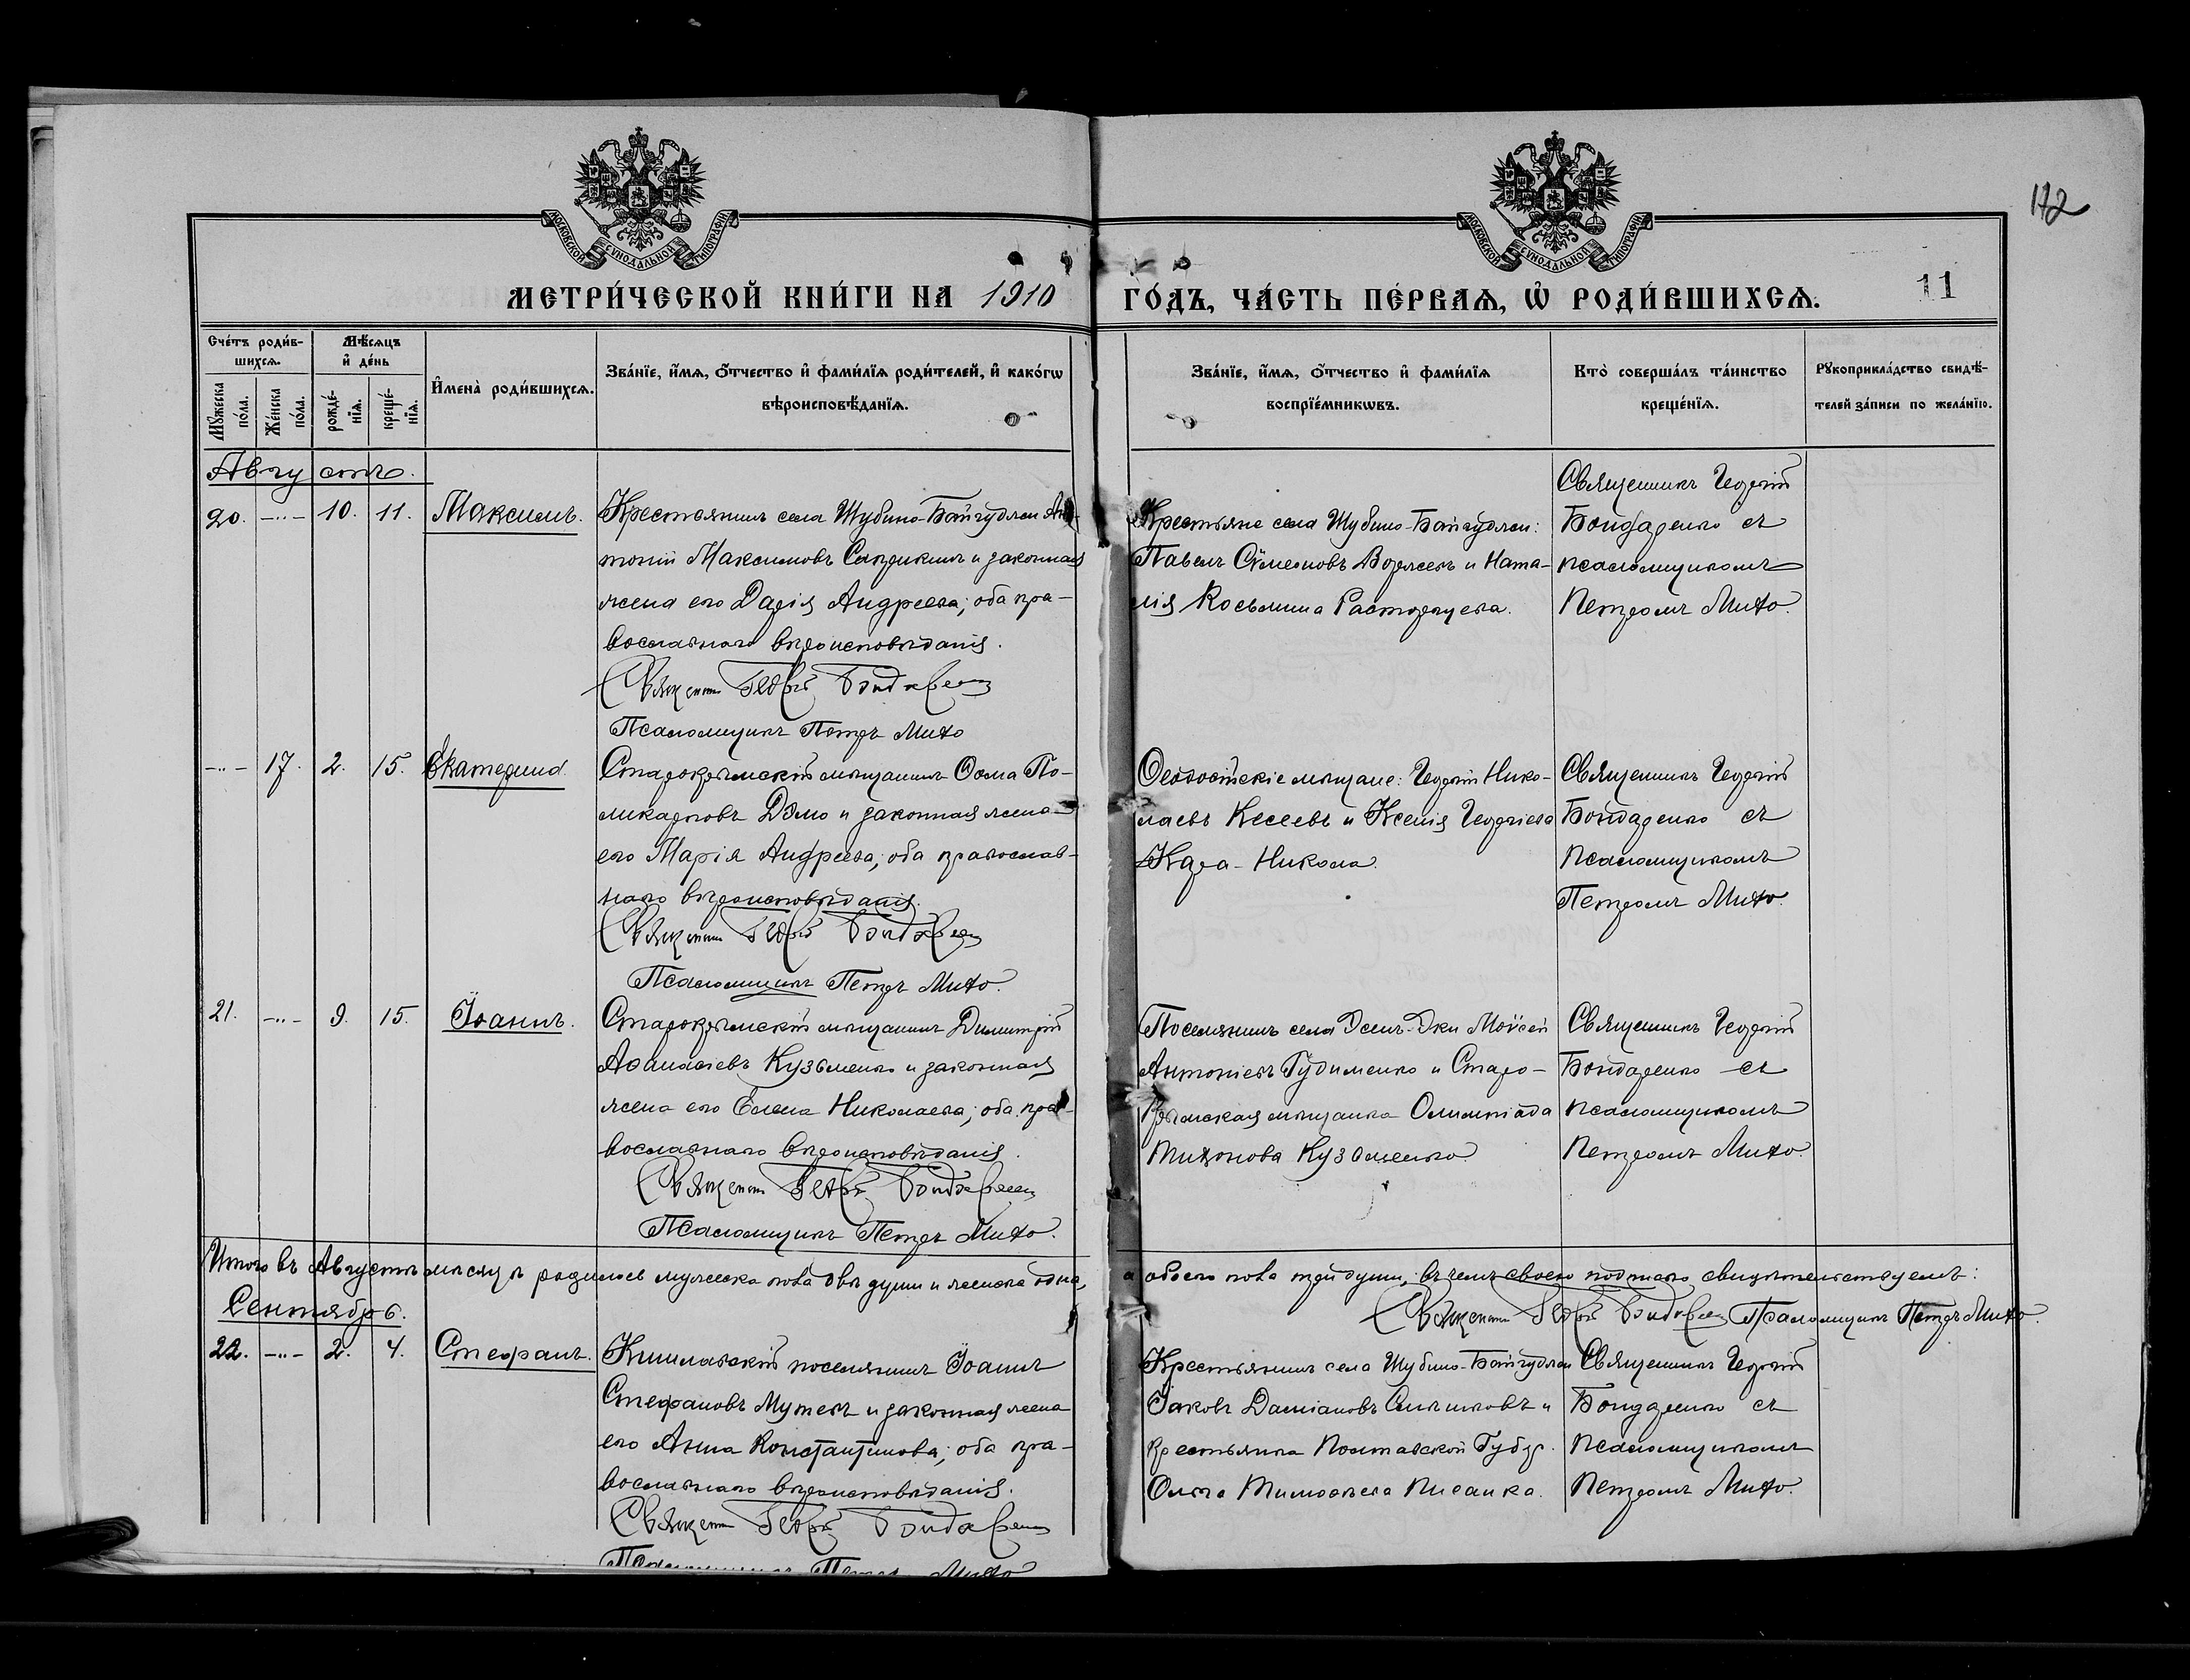 112
МОСКОВСКОЙ СѴНОДАЛЬНОЙ ТИПОГРАФІИ
МОСКОВСКОЙ СѴНОДАЛЬНОЙ ТИПОГРАФІИ
МЕТРИ́ЧЕСКОЙ КНИ́ГИ НА 1910
ГО́ДЪ, ЧА́СТЬ ПЕ́РВАѦ, Ѽ РОДИ́ВШИХСѦ.
11
Сче́тъ роди́в-
шихсѧ.
Мꙋ́жеска
по́ла.
Же́нска
по́ла.
Мѣ́сѧцъ
и҆ де́нь
рожде́-
нїѧ.
креще́-
нїѧ.
И҆мена̀ роди́вшихсѧ.
Зва́нїе, и҆́мѧ, ѻ҆́тчество и҆ фами́лїѧ роди́телей, и҆ како́гѡ
вѣроисповѣ́данїѧ.
Зва́нїе, и҆́мѧ, ѻ҆́тчество и҆ фами́лїѧ
воспрїе́мникѡвъ.
Кто̀ соверша́лъ та́инство
креще́нїѧ.
Рꙋкоприкла́дство свидѣ́-
телей за́писи по жела́нїю.
Августъ.
20. -..- 10. 11. Максимъ.
Крестьянинъ села Шубино-Байгуджи Ан-
тоній Максимовъ и законная
жена его Дарія Андреева; оба пра-
вославнаго вѣроисповѣданія.
Священникъ Георгій Бондаренко
Псаломщикъ Петръ Михо
Крестьяне села Шубино-Байгуджи:
Павелъ Сѵмеоновъ и Ната-
лія Косьмина Расторгуева.
Священникъ Георгій
Бондаренко съ
псаломщикомъ
Петромъ Михо.
-..- 17. 2. 15. Екатерина.
Старокрымскій мѣщанинъ Ѳома По-
ликарповъ и законная жена
его Марія Андреева; оба православ-
наго вѣроисповѣданія.
Священникъ Георгій Бондаренко
Псаломщикъ Петръ Михо.
Ѳеодосійскіе мѣщане: Георгій Нико-
лаевъ Кесеевъ и Ксенія Георгіева
Кара-Никола.
Священникъ Георгій
Бондаренко съ
псаломщикомъ
Петромъ Михо.
21. -..- 9. 15. Іоаннъ.
Старокрымскій мѣщанинъ Димитрій
Аѳанасіевъ Кузьменко и законная
жена его Елена Николаева; оба пра-
вославнаго вѣроисповѣданія.
Священникъ Георгій Бондаренко
Псаломщикъ Петръ Михо.
Поселянинъ села Моѵсей
Антоніевъ Гудименко и Старо-
крымская мѣщанка Олимпіада
Тихонова Кузьменко.
Священникъ Георгій
Бондаренко съ
псаломщикомъ
Петромъ Михо.
Итого въ Августѣ мѣсяцѣ родилось мужеска пола двѣ души и женска одна,
а обоего пола три души, въ чемъ своею подписью свидѣтельствуемъ:
Священникъ Георгій Бондаренко Псаломщикъ Петръ Михо.
Сентябрь.
22. -..- 2. 4. Стефанъ.
Кишлавскій поселянинъ Іоаннъ
Стефановъ и законная жена
его Анна Константинова; оба пра-
вославнаго вѣроисповѣданія.
Священникъ Георгій Бондаренко
Псаломщикъ Петръ Михо
Крестьянинъ села Шубино-Байгуджи
Іаковъ Даміановъ и
крестьянка Полтавской Губер.
Ольга Тимоѳеева Писанка.
Священникъ Георгій
Бондаренко съ
псаломщикомъ
Петромъ Михо.